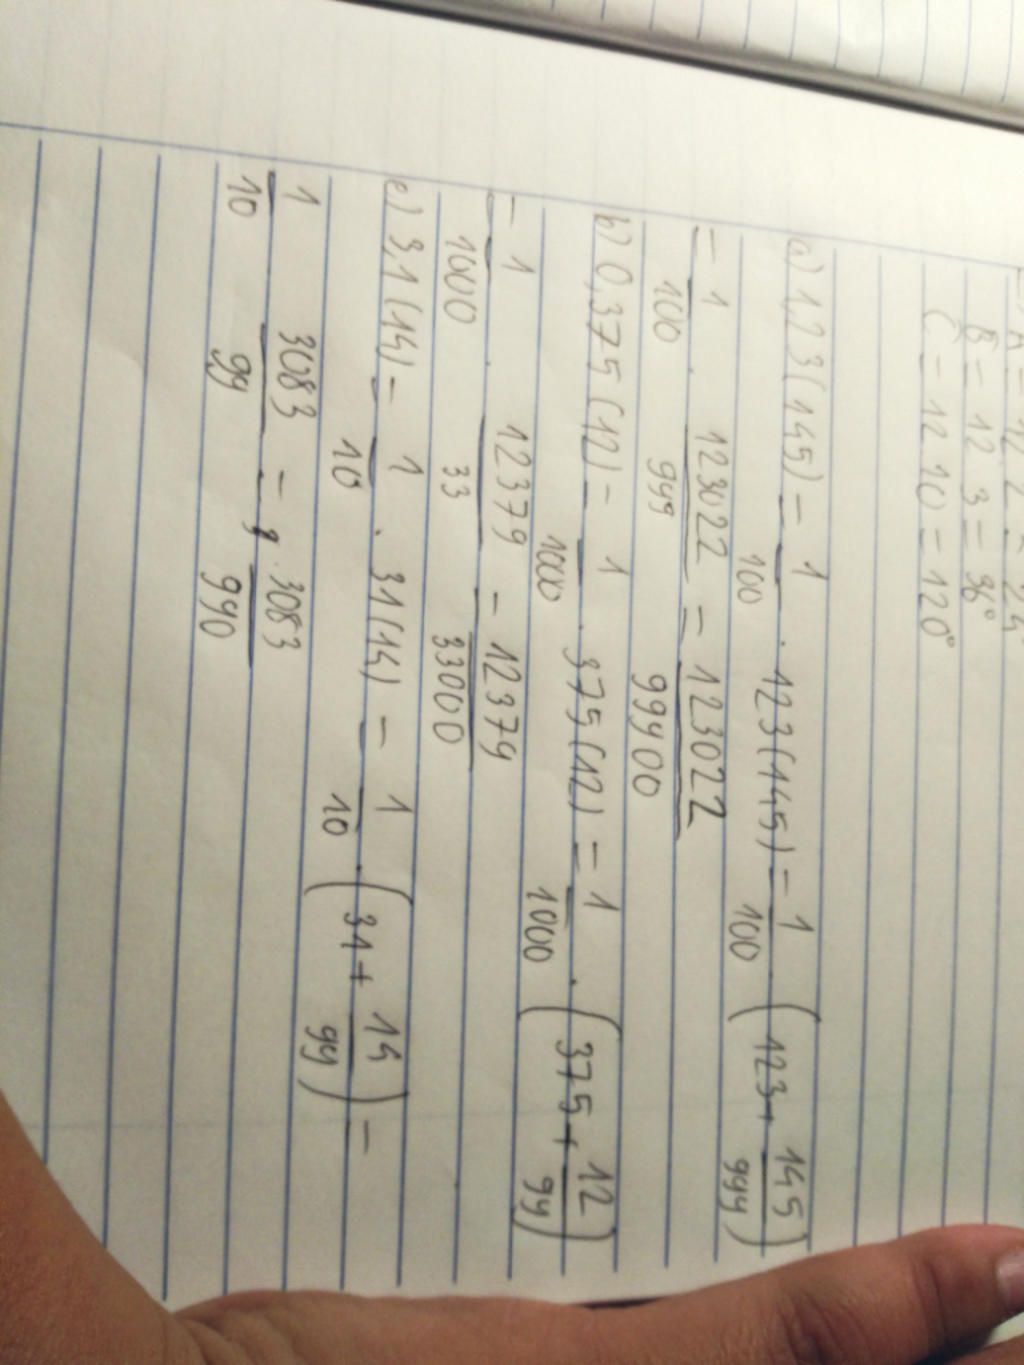 B̂ = 12.3 = 36°
Ĉ = 12.10 = 120°
a) 1,23(145) = 1/100 . 123(145) = 1/100 . (123 + 145/999)
= 1/100 . 123022/999 = 123022/99900
b) 0,375(12) = 1/1000 . 375(12) = 1/1000 . (375 + 12/99)
= 1/1000 . 12379/33 = 12379/33000
c) 3,1(14) = 1/10 . 31(14) = 1/10 . (31 + 14/99) =
1/10 3083/99 = 3083/990